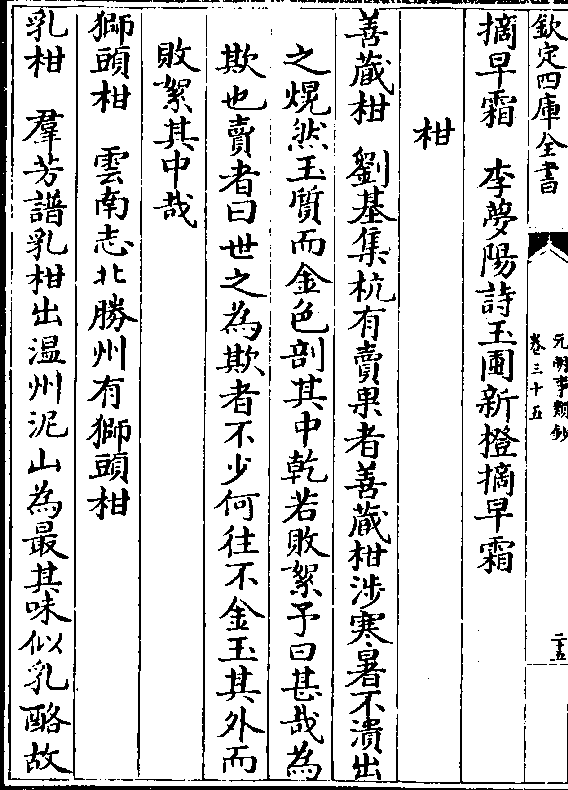 欽定四庫全書
元明事類鈔
卷三十五
二十五
摘早霜　李夢陽詩玉圃新橙摘早霜
柑
善藏柑　劉基集杭有賣果者善藏柑涉寒暑不潰出
之熀然玉質而金色剖其中乾若敗絮予曰甚哉為
欺也賣者曰世之為欺者不少何往不金玉其外而
敗絮其中哉
獅頭柑　雲南志北勝州有獅頭柑
乳柑　羣芳譜乳柑出温州泥山為最其味似乳酪故